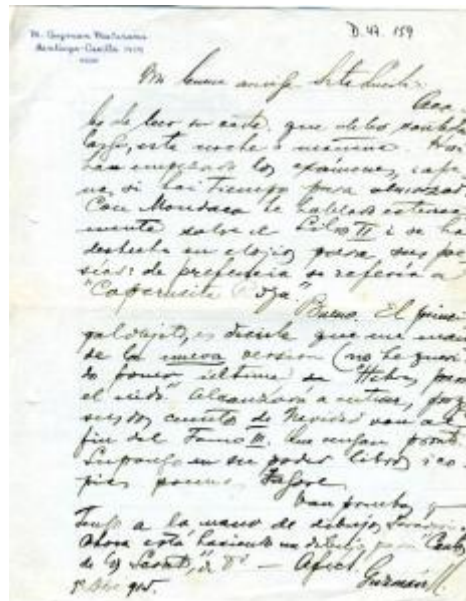 D. 47. 159
M. Guzman Maturana
Santiago-Casilla
Mi buena amiga Sta Lucila:
Aca
bo de leer su carta, que debo contestar
luego, esta noche o mañana. Hoi
han empezado los exámenes, i ape
nas si hai tiempo para almorzar.
Con Mondaca he hablado estensa
mente sobre el Libro II i se ha
deshecho en elojios para sus poe
sías: de preferencia se refería a
"Caperucita Roja"
Bueno. El princi
pal objeto, es decirle que me man
de la nueva version (no he queri
do poner última de "Hebras para
el nido". Alcanzará a entrar, porq
sus dos cuentos de Navidad van al
fin del Tomo III. Que vengan pronto.
Supongo en su poder libros i co
pias poemas Tagore.
Van pruebas q
Tengo a la mano de dibujos
Ahora está haciendo un dibujo para
de Ud — Afect.
Guzmán M.
915.